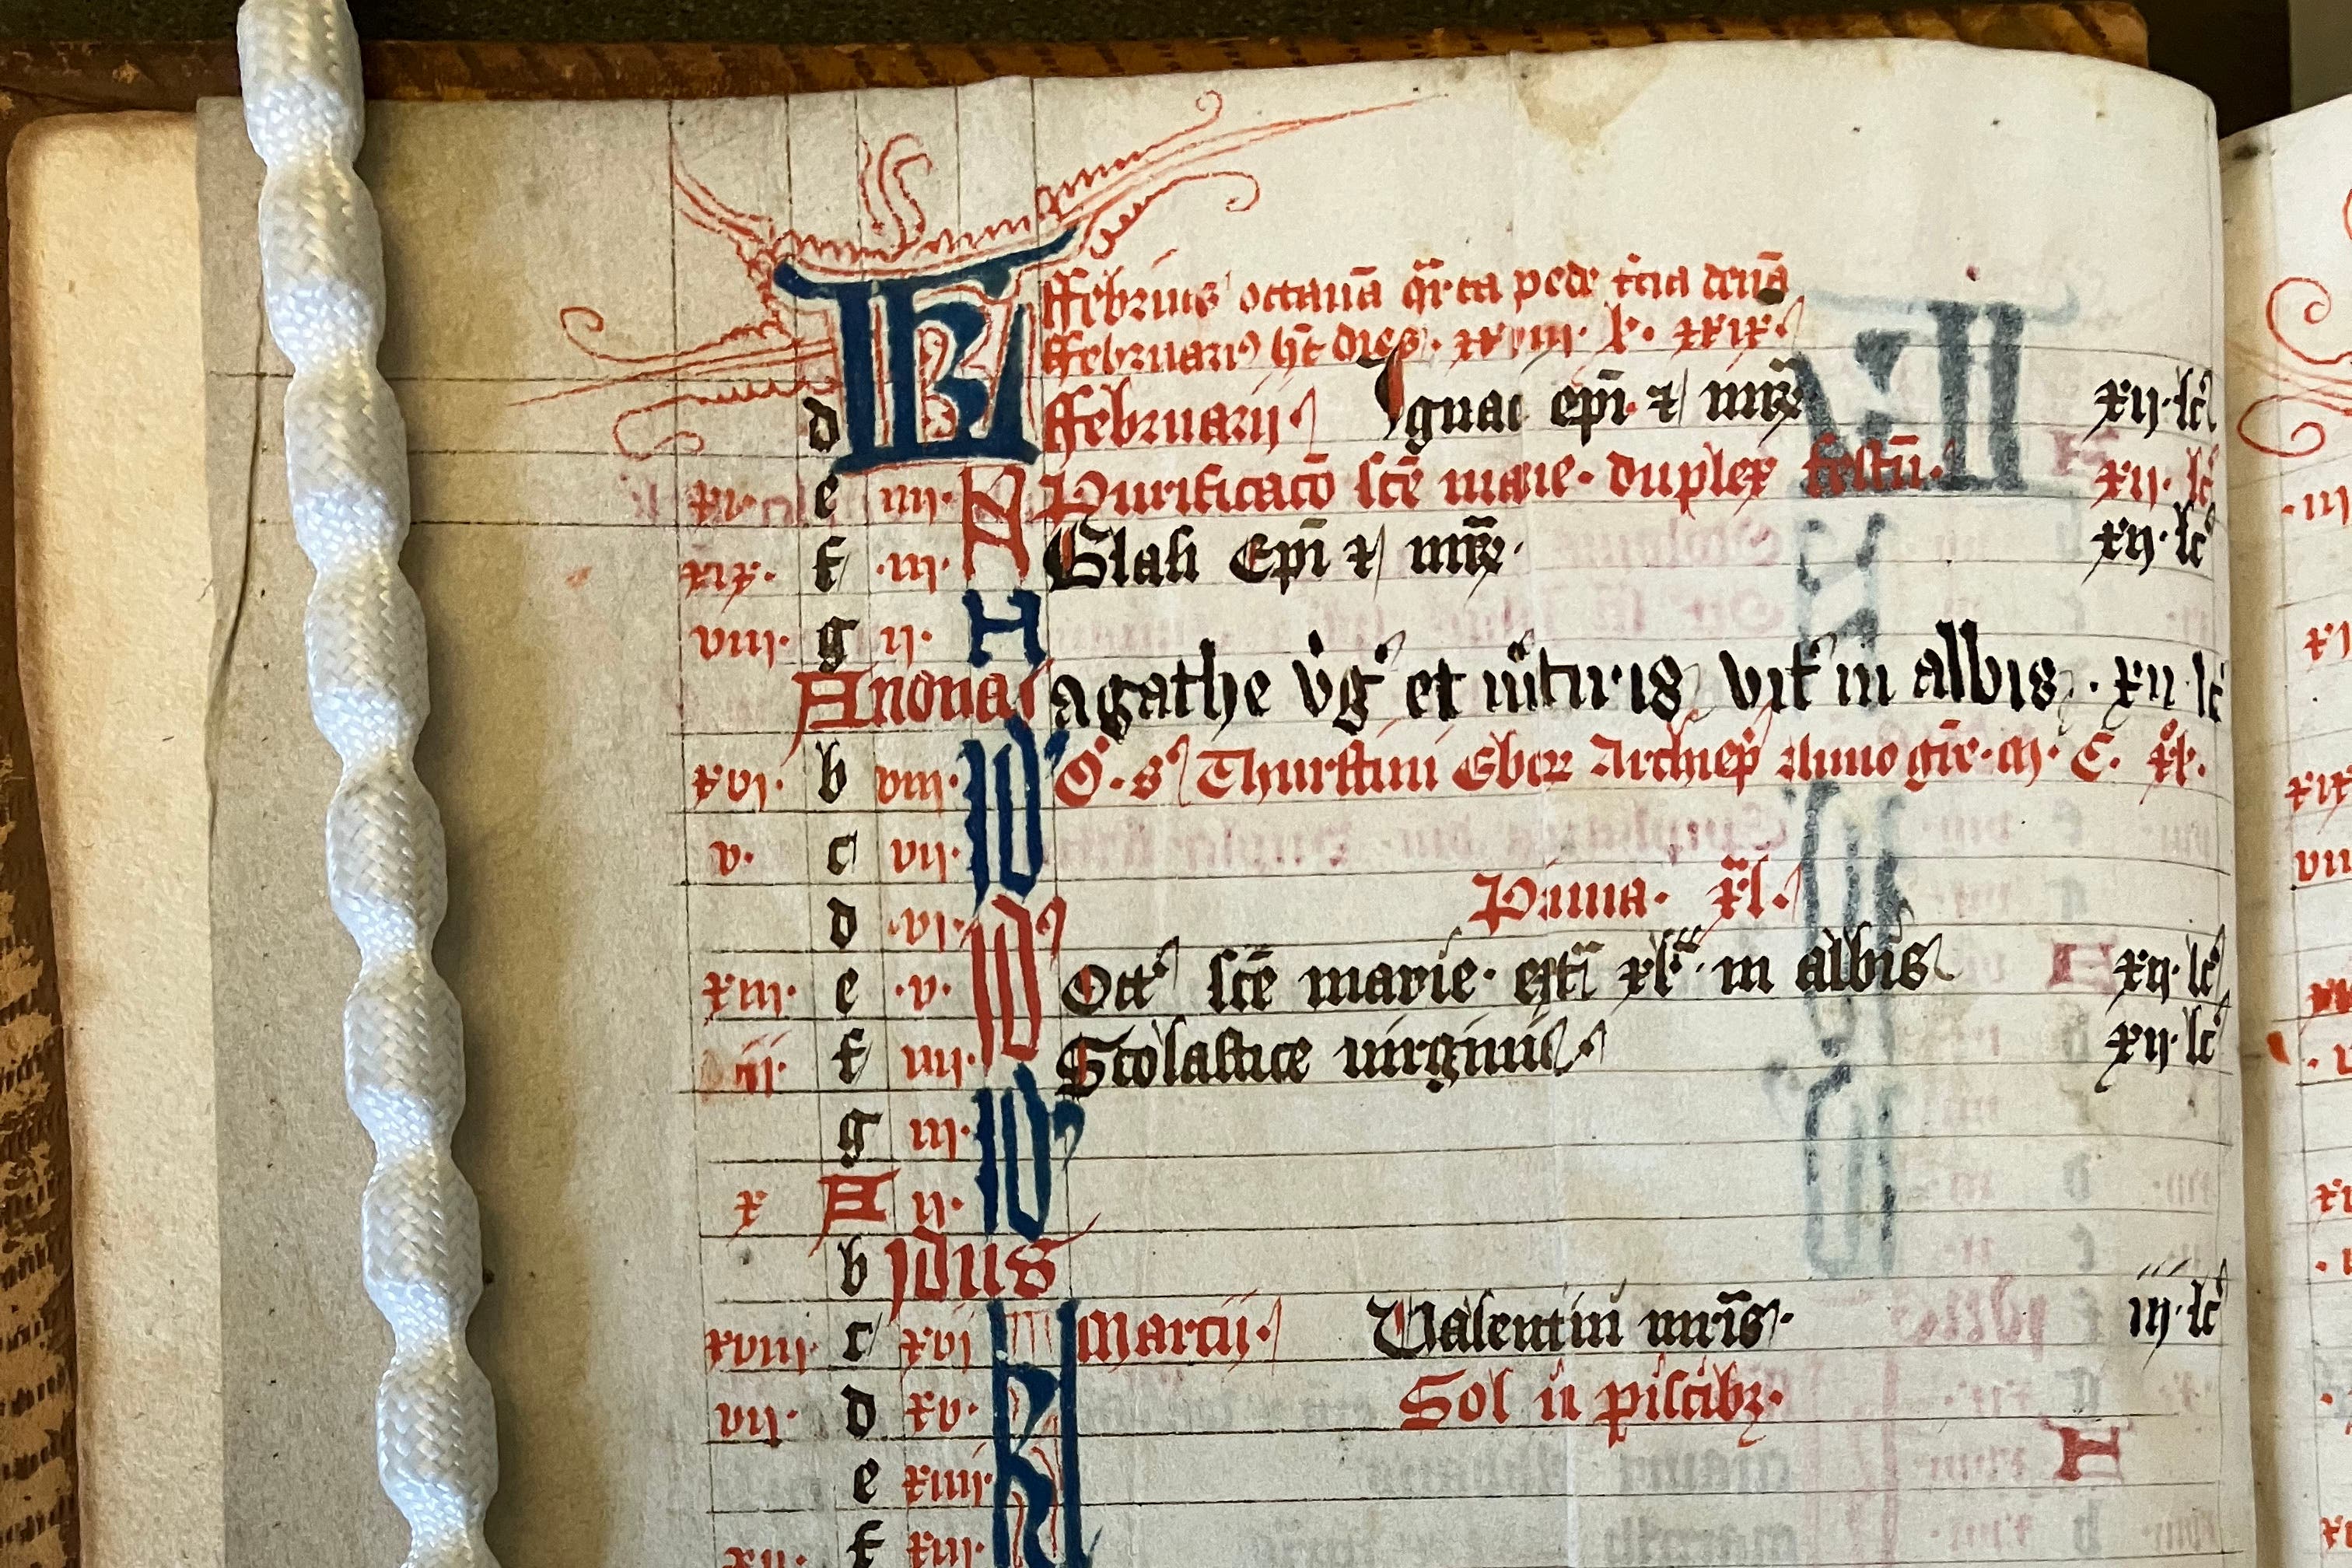 ffebrius octauā q̄rta pede t̄cia denā
ffebruariꝰ h̄t dies. xxviij. l'. xxix.
d KL ffebruarij. Ignac ep̄i ⁊ mr̄ꝫ xij. lc̄
xi. e iiij. N Purificacō sc̄e marie. duplex festū. xij. lc̄
xix. f .iij. Blasii Ep̄i ⁊ mr̄ꝫ. xij. lc̄
viij. g ij. N
A nonas agathe v̓gꝰ et m̓tiris vit̓ in albis. xij lc̄
xvi. b viij. Idꝰ O. sꝰ Thurstini Ebor Archiep̄ Anno gr̄e. M. C. xl.
v. c vij.
d .vi. Idꝰ Prima. x̄l.
xiij. e .v. Octꝰ sc̄e marie. in albis xij. lc̄
ij. f iiij. Scolastice uirginis. xij. lc̄
g iij. Idꝰ
x A ij.
b Idus
xviij c xvi KL Marcij. Valentini mr̄is. iij. lc̄
vij. d xv. Sol in piscibꝫ.
e xiiij.
xv. f xiij.